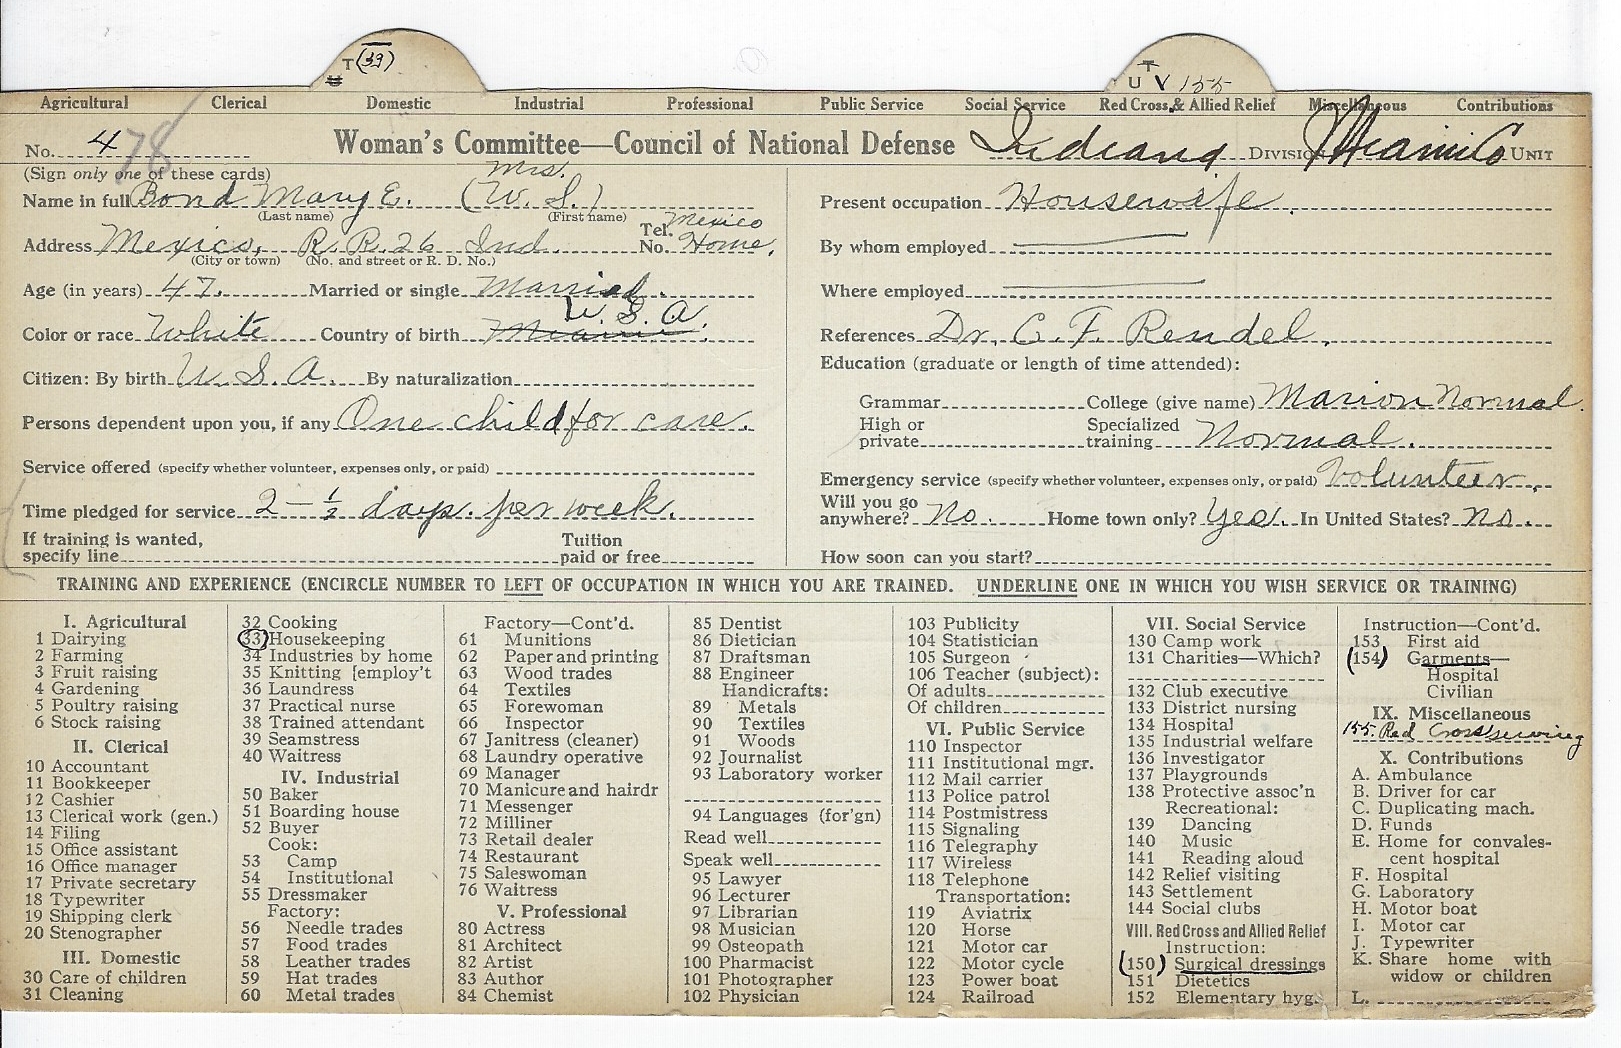 T (39)
T
U V 155
Agricultural Clerical Domestic Industrial Professional Public Service Social Service Red Cross & Allied Relief Miscellaneous Contributions
No. 4 78 Woman's Committee—Council of National Defense Indiana DIVISION Miami Co UNIT
(Sign only one of these cards) Mrs.
Name in full Bond Mary E. (W. S.)
(Last name) (First name)
Address Mexico, R. R. 26 Ind. Tel. No. Mexico Home.
(City or town) (No. and street or R. D. No.)
Age (in years) 47. Married or single Married.
U. S. A.
Color or race White Country of birth Miami
Citizen: By birth U. S. A. By naturalization
Persons dependent upon you, if any One child for care.
Service offered (specify whether volunteer, expenses only, or paid)
Time pledged for service 2 – ½ days. per week.
If training is wanted, specify line Tuition paid or free
Present occupation Housewife.
By whom employed
Where employed
References Dr. C. F. Rendel.
Education (graduate or length of time attended):
Grammar College (give name) Marion Normal.
High or private Specialized training Normal.
Emergency service (specify whether volunteer, expenses only, or paid) Volunteer.
Will you go anywhere? No. Home town only? Yes. In United States? No.
How soon can you start?
TRAINING AND EXPERIENCE (ENCIRCLE NUMBER TO LEFT OF OCCUPATION IN WHICH YOU ARE TRAINED. UNDERLINE ONE IN WHICH YOU WISH SERVICE OR TRAINING)
I. Agricultural
1 Dairying
2 Farming
3 Fruit raising
4 Gardening
5 Poultry raising
6 Stock raising
II. Clerical
10 Accountant
11 Bookkeeper
12 Cashier
13 Clerical work (gen.)
14 Filing
15 Office assistant
16 Office manager
17 Private secretary
18 Typewriter
19 Shipping clerk
20 Stenographer
III. Domestic
30 Care of children
31 Cleaning
32 Cooking
33 Housekeeping
34 Industries by home
35 Knitting [employ't
36 Laundress
37 Practical nurse
38 Trained attendant
39 Seamstress
40 Waitress
IV. Industrial
50 Baker
51 Boarding house
52 Buyer
Cook:
53 Camp
54 Institutional
55 Dressmaker
Factory:
56 Needle trades
57 Food trades
58 Leather trades
59 Hat trades
60 Metal trades
Factory—Cont'd.
61 Munitions
62 Paper and printing
63 Wood trades
64 Textiles
65 Forewoman
66 Inspector
67 Janitress (cleaner)
68 Laundry operative
69 Manager
70 Manicure and hairdr
71 Messenger
72 Milliner
73 Retail dealer
74 Restaurant
75 Saleswoman
76 Waitress
V. Professional
80 Actress
81 Architect
82 Artist
83 Author
84 Chemist
85 Dentist
86 Dietician
87 Draftsman
88 Engineer
Handicrafts:
89 Metals
90 Textiles
91 Woods
92 Journalist
93 Laboratory worker
94 Languages (for'gn)
Read well
Speak well
95 Lawyer
96 Lecturer
97 Librarian
98 Musician
99 Osteopath
100 Pharmacist
101 Photographer
102 Physician
103 Publicity
104 Statistician
105 Surgeon
106 Teacher (subject):
Of adults
Of children
VI. Public Service
110 Inspector
111 Institutional mgr.
112 Mail carrier
113 Police patrol
114 Postmistress
115 Signaling
116 Telegraphy
117 Wireless
118 Telephone
Transportation:
119 Aviatrix
120 Horse
121 Motor car
122 Motor cycle
123 Power boat
124 Railroad
VII. Social Service
130 Camp work
131 Charities—Which?
132 Club executive
133 District nursing
134 Hospital
135 Industrial welfare
136 Investigator
137 Playgrounds
138 Protective assoc'n
Recreational:
139 Dancing
140 Music
141 Reading aloud
142 Relief visiting
143 Settlement
144 Social clubs
VIII. Red Cross and Allied Relief
Instruction:
(150) Surgical dressings
151 Dietetics
152 Elementary hyg.
Instruction—Cont'd.
153 First aid
(154) Garments—
Hospital
Civilian
IX. Miscellaneous
155. Red Cross sewing
X. Contributions
A. Ambulance
B. Driver for car
C. Duplicating mach.
D. Funds
E. Home for convales-
cent hospital
F. Hospital
G. Laboratory
H. Motor boat
I. Motor car
J. Typewriter
K. Share home with
widow or children
L.